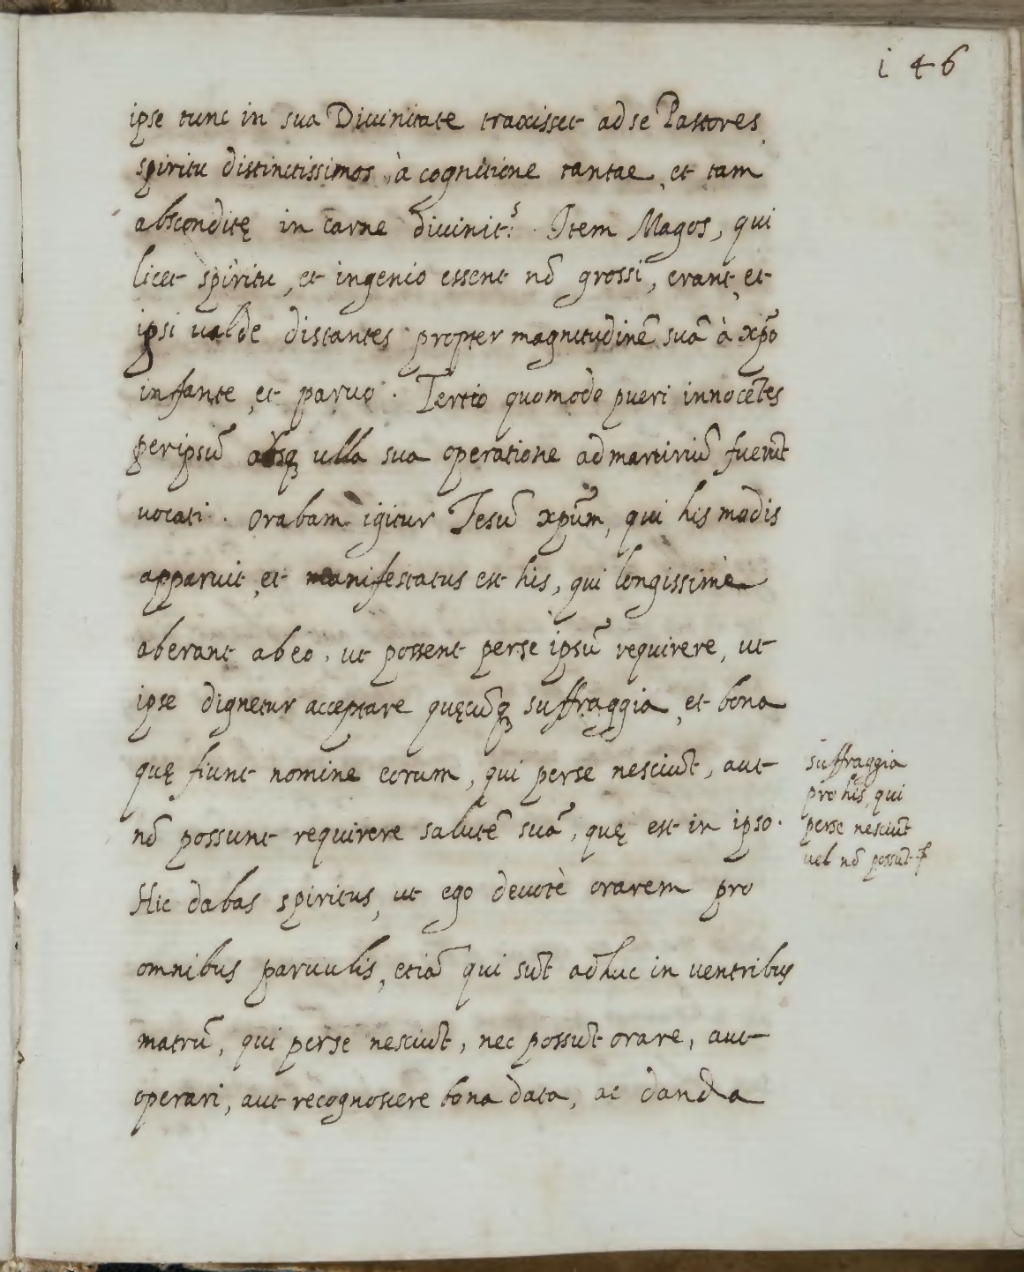 i 46
ipse tunc in sua Diuinitate traxisset ad se Pastores
spiritu distinctissimos, à cognitione tantae, et tam
absconditę in carne diuinit.ˢ. Item Magos, qui
licet spiritu, et ingenio essent nõ grossi, erant, et
ipsi ualde distantes propter magnitudinẽ suã à xp̃o
inffante, et paruo. Tertio quomodo pueri innocẽtes
per ipsũ absqꝫ ulla sua operatione ad martiriũ fuerũt
uocati. Orabam igitur Jesũ xp̃um, qui his modis
apparuit, et manifestatus est his, qui longissime
aberant ab eo, ut possent per se ipsũ requirere, ut
ipse dignetur acceptare quęcũqꝫ suffraggia, et bona
quę fiunt nomine eorum, qui per se nesciũt, aut
nõ possunt requirere salutẽ suã, quę est in ipso.
Hic dabas spiritus, ut ego deuotè orarem pro
omnibus paruulis, etiã qui sũt adhuc in uentribus
matrũ, qui per se nesciũt, nec possũt orare, aut
operari, aut recognoscere bona data, ac danda
suffraggia
pro his, qui
per se nesciũt
uel nõ possũt